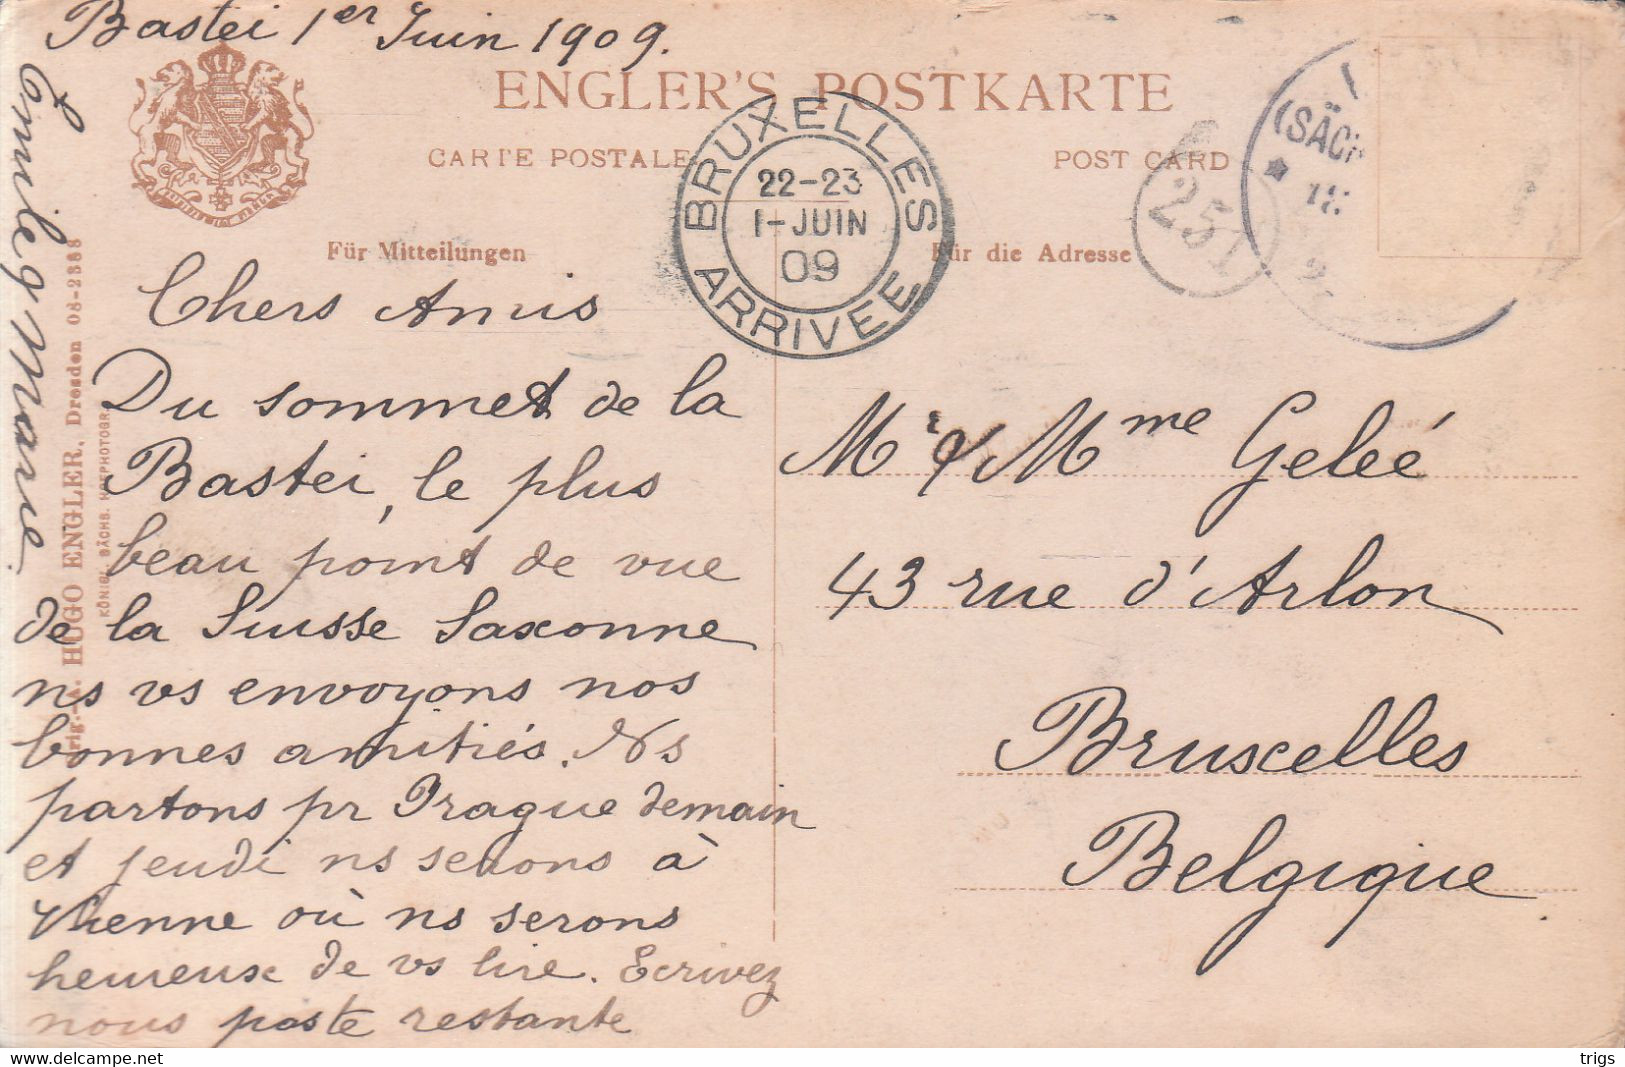 Bastei 1er Juin 1909.
ENGLER'S POSTKARTE
CARTE POSTALE
POST CARD
Für Mitteilungen
Für die Adresse
BRUXELLES
22-23
1-JUIN
09
ARRIVEE
251
(SÄCH
18
Chers Amis
Du sommet de la
Bastei, le plus
beau point de vue
de la Suisse Saxonne
ns vs envoyons nos
bonnes amitiés. Ns
partons pr Prague demain
et jeudi ns serons à
Vienne où ns serons
heureux de vs lire. Ecrivez
nous poste restante
Emile & Marie
Mr & Mme Geleé
43 rue d'Arlon
Bruxelles
Belgique
HUGO ENGLER, Dresden 08-2388
KÖNIGL. SÄCHS. HOFPHOTOGR.
delcampe.net
trigs